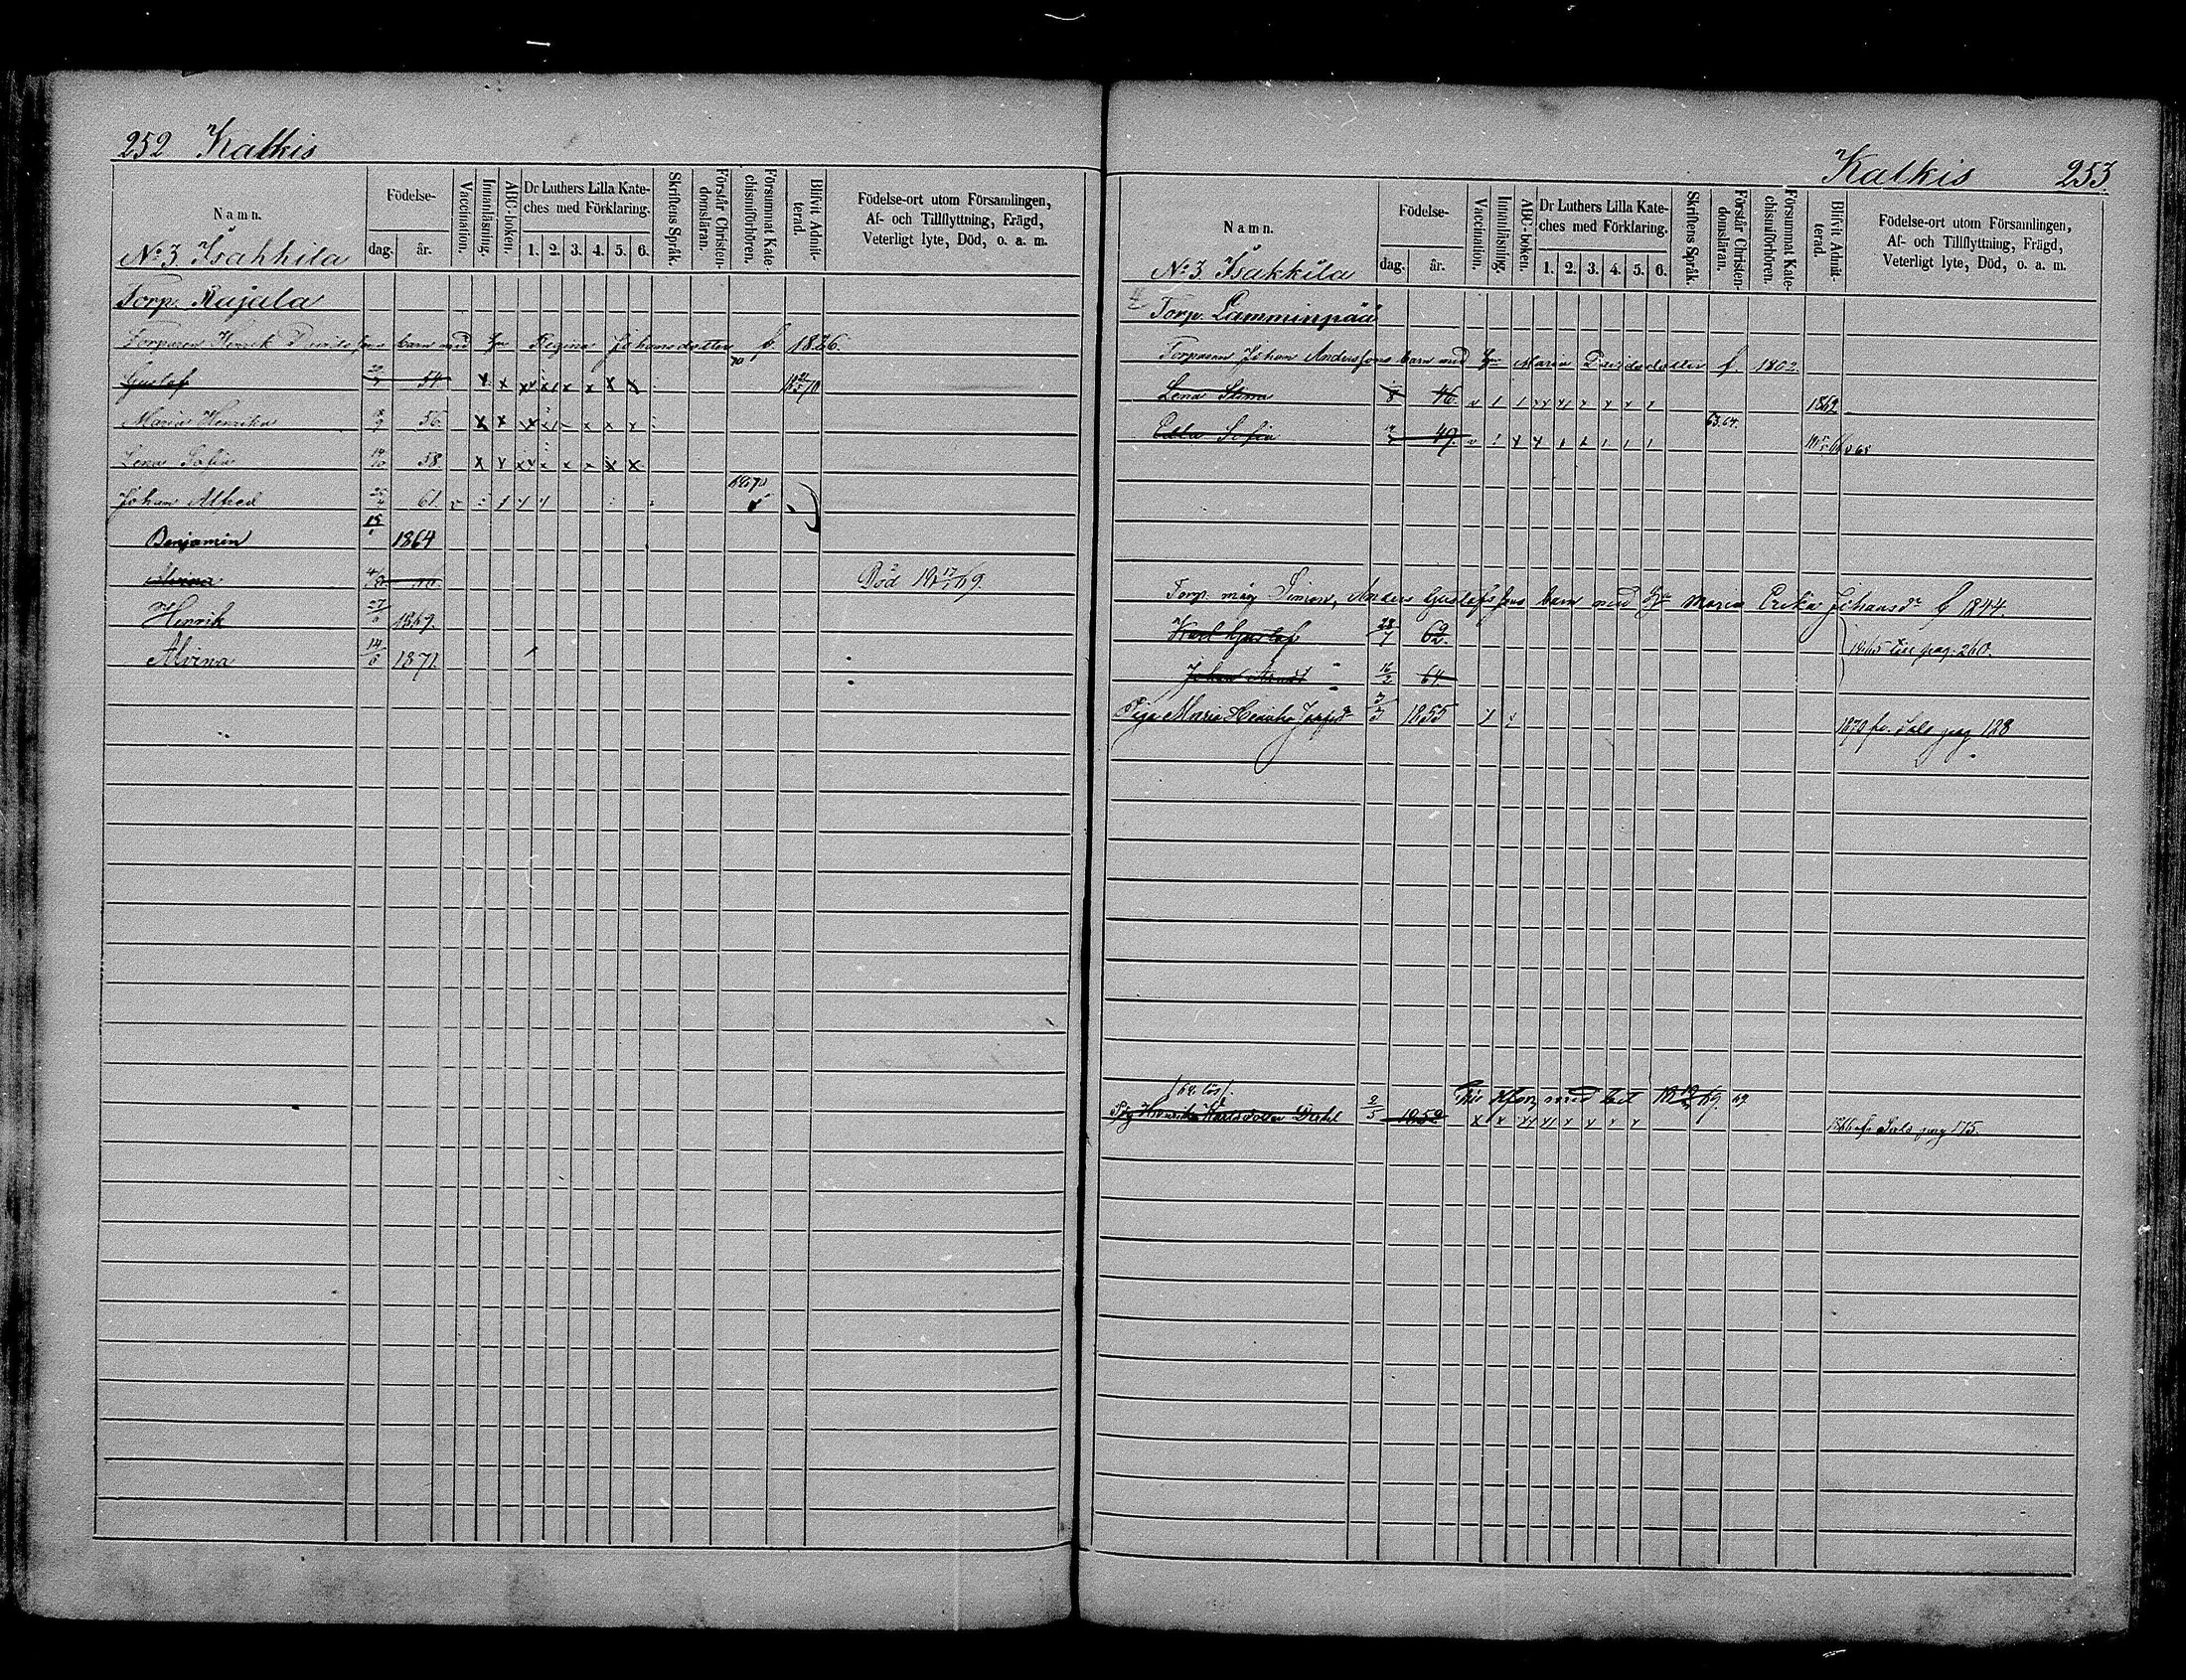 252 Katkis
Namn.
Födelse-
dag.
år.
Vaccination.
Innanläsning.
ABC-boken.
Dr Luthers Lilla Kate-
ches med Förklaring.
1. 2. 3. 4. 5. 6.
Skriftens Språk.
Förstår Christen-
domsläran.
Försummat Kate-
chismiförhören.
Blifvit Admit-
terad.
Födelse-ort utom Församlingen,
Af- och Tillflyttning, Frägd,
Veterligt lyte, Död, o. a. m.
No 3 Isakkila
Torp. Rajala
Torparen Henrik Davidssons barn med Hu Regina Johansdotter f. 1826.
Gustaf 54
Maria Henrika 56
Lena Sofia 58
Johan Alfred 61.
Benjamin 15 1864
Alvina Död 18 17/1 69.
Henrik 1869.
Alvina 14/6 1871.
Katkis 253
Namn.
Födelse-
dag.
år.
Vaccination.
Innanläsning.
ABC-boken.
Dr Luthers Lilla Kate-
ches med Förklaring.
1. 2. 3. 4. 5. 6.
Skriftens Språk.
Förstår Christen-
domsläran.
Försummat Kate-
chismiförhören.
Blifvit Admit-
terad.
Födelse-ort utom Församlingen,
Af- och Tillflyttning, Frägd,
Veterligt lyte, Död, o. a. m.
No 3 Isakkila
Torp. Lamminpää
Torparen Johan Anderssons barn med Hu Maria Davidsdotter f. 1802
Lena Stina 46 1862
Edla Sofia 49. 63.64.
Torp. måg Simon, Anders Gustafssons barn med Hu Maria Erika Johansdr f 1844.
Karl Gustaf 28/7 62. 1865 till pag. 260.
Johan 16/2 64
Piga Maria Henrika 1855 1870 fr. pag 188
med bet 69.
Pig Henrika Karlsdotter 2/5 1852 pag 175.